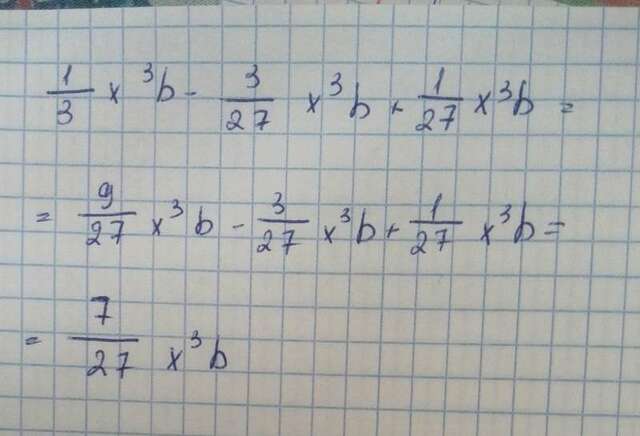 1/3 x³b - 3/27 x³b + 1/27 x³b =
= 9/27 x³b - 3/27 x³b + 1/27 x³b =
= 7/27 x³b